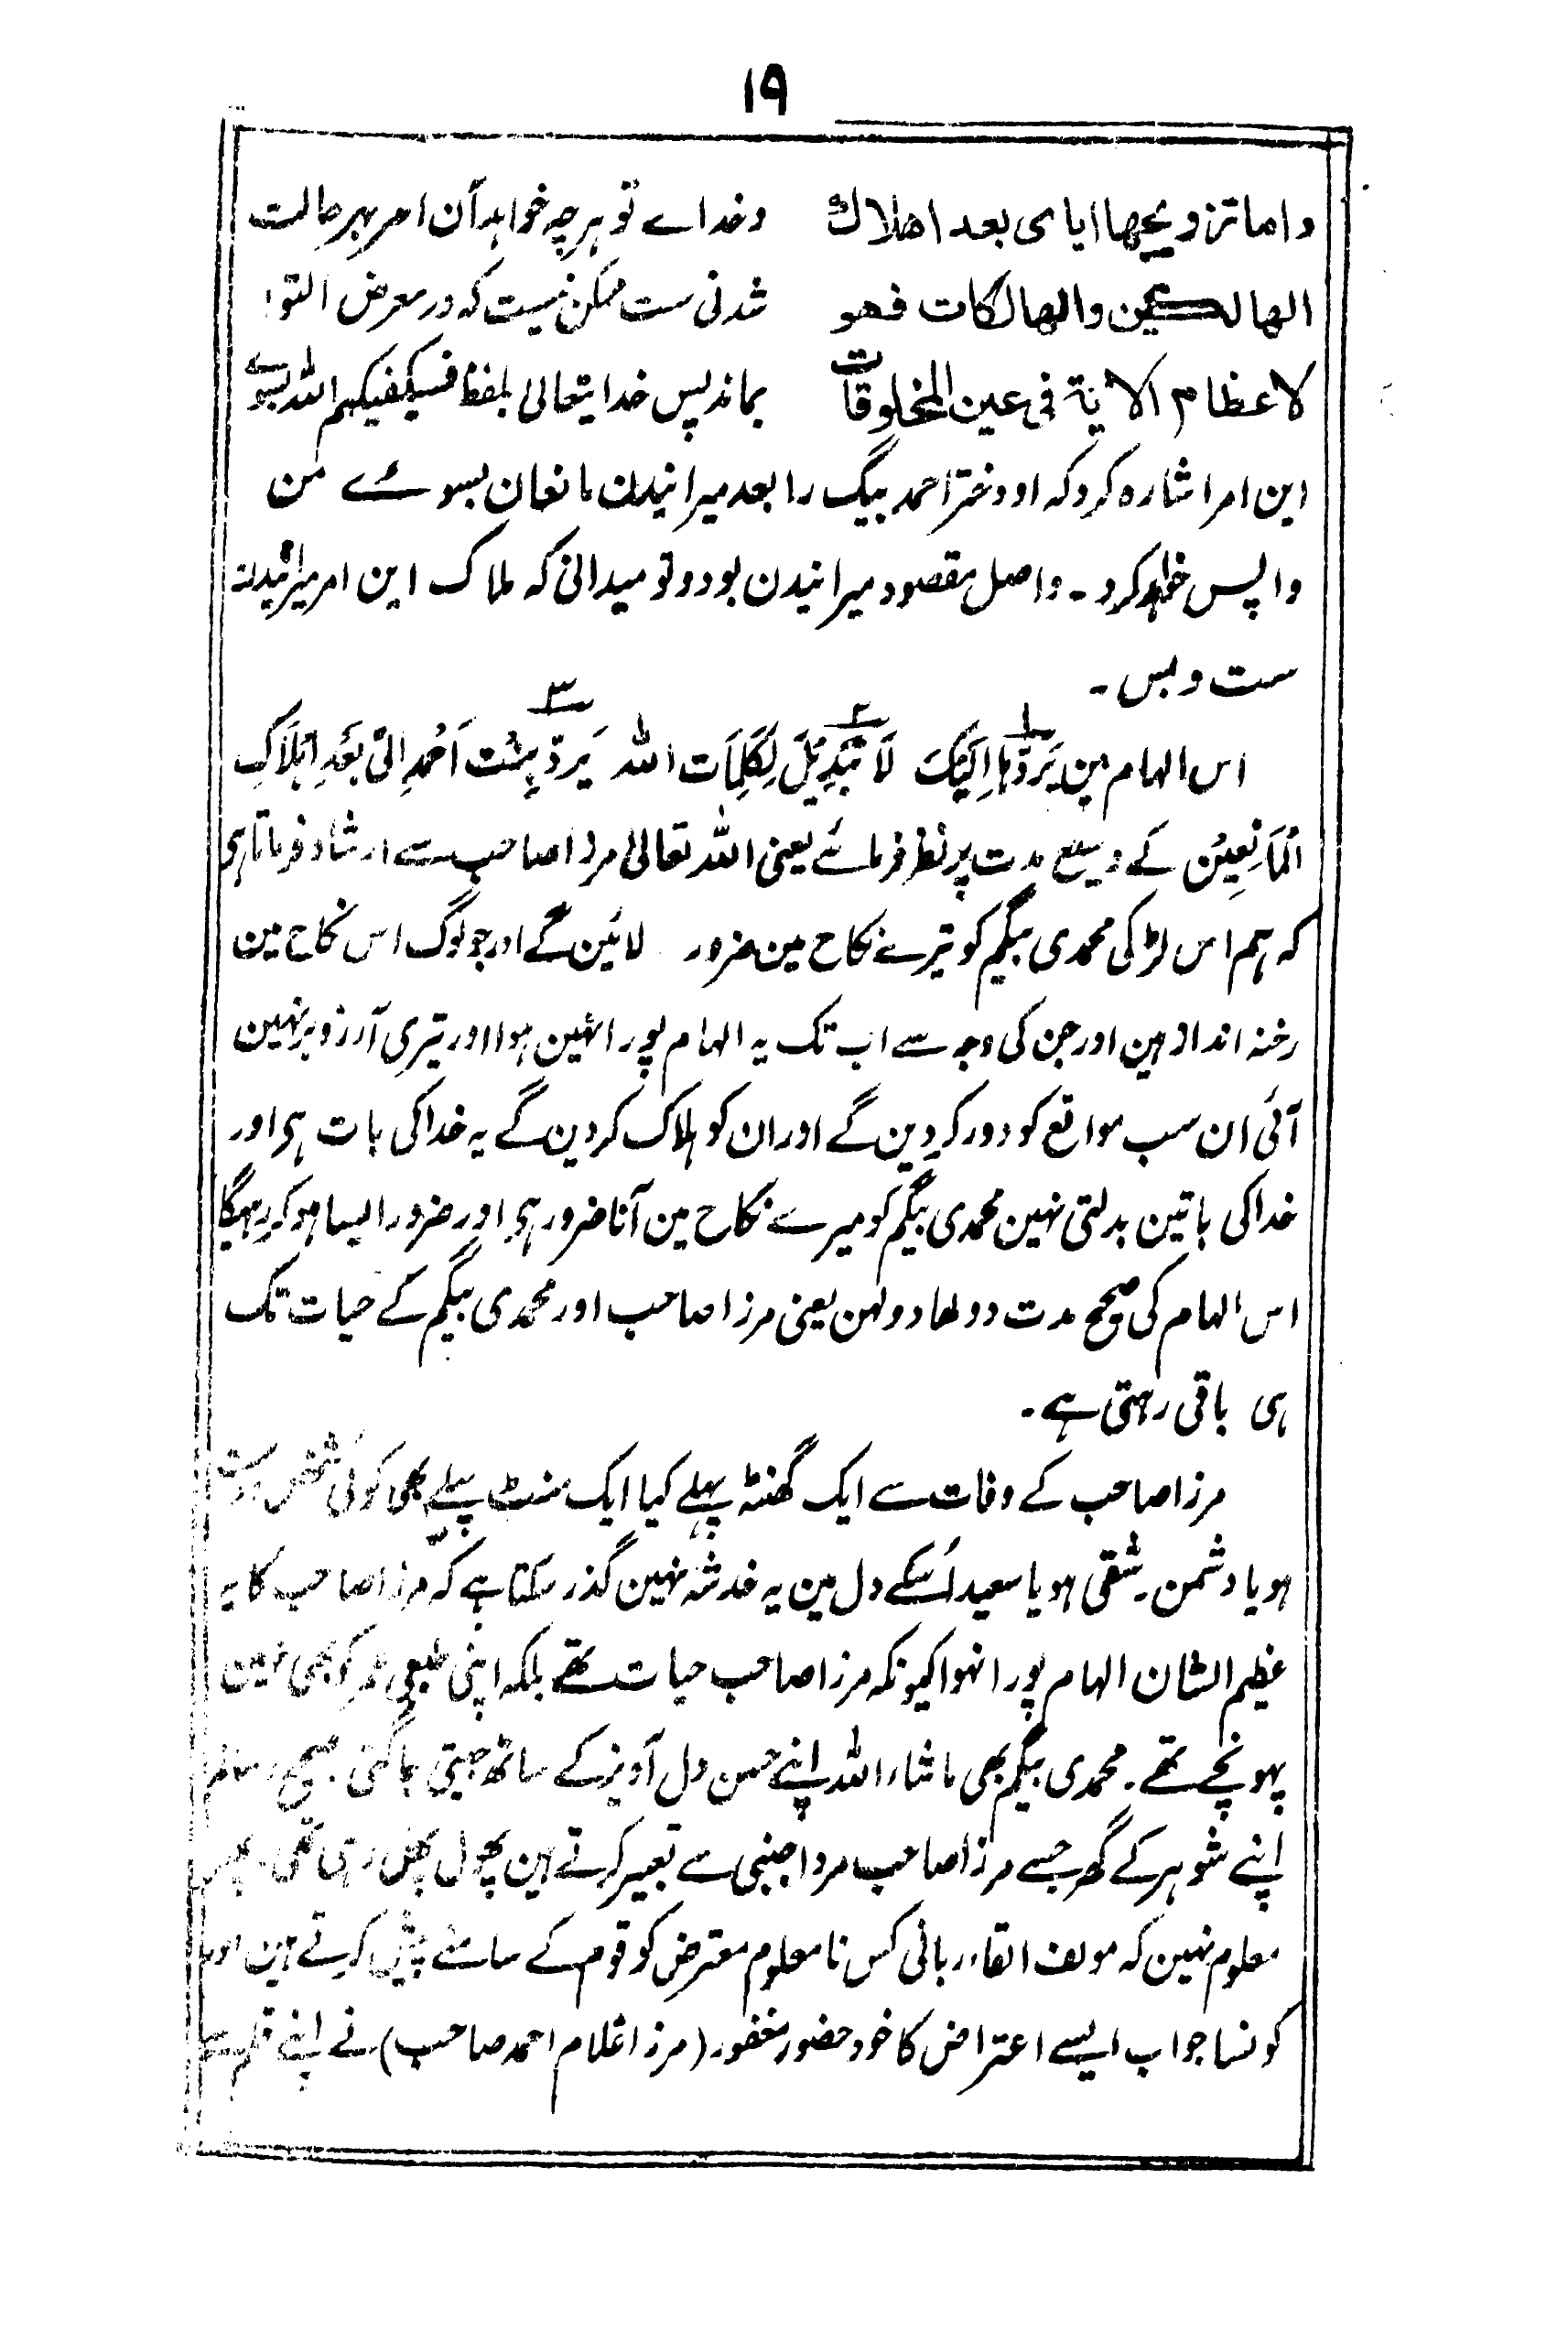 ۱۹
واما تزویجها ایای بعد اهلاك وخداے تو ہرچہ خواہد آن امر بہر حالت
الهالكين والهالكات فهو شدنی ست ممکن نیست کہ در معرض التوا
لاعظام الاٰية فی عين المخلوقات بماند پس خدایتعالی بلفظ فسیکفیکہم اللہ بسوے
این امر اشارہ کرد کہ او دختر احمد بیگ را بعد میرانیدن مانعان بسوئے من
واپس خواہد کرد ۔ واصل مقصود میرانیدن بود و تو میدانی کہ ملاک این امر میرانیدن
ست وبس ۔
اس الہام مین یَرُدُّہَا اِلَیْکَ ۱ لَا تَبْدِیْلَ لِکَلِمَات اللہ ۲ یَردّ بِنْت اَحْمدِ اِلیَّ بَعْدِ اِہْلَاکِ ۳
الْمَانِعِیْن کے وسیع مدت پر نظر فرمائے یعنی اللہ تعالیٰ مرزا صاحب سے ارشاد فرماتا ہی
کہ ہم اس لڑکی محمدی بیگم کو تیرے نکاح مین ضرور لائین گے اور جو لوگ اس نکاح مین
رخنہ انداز ہین اور جن کی وجہ سے اب تک یہ الہام پورا نہین ہوا اور تیری آرزو بر نہین
آئی ان سب مواقع کو دور کر دین گے اور ان کو ہلاک کر دین گے یہ خدا کی بات ہی اور
خدا کی باتین بدلتی نہین محمدی بیگم کو میرے نکاح مین آنا ضرور ہی اور ضرور ایسا ہو کر رہیگا
اس الہام کی صحیح مدت دولھا دولہن یعنی مرزا صاحب اور محمدی بیگم کے حیات تک
ہی باقی رہتی ہے ۔
مرزا صاحب کے وفات سے ایک گھنٹہ پہلے کیا ایک منٹ پہلے بھی کوئی شخص دوست
ہو یا دشمن ۔ شقی ہو یا سعید اُسکے دل مین یہ خدشہ نہین گذر سکتا ہے کہ مرزا صاحب کا یہ
عظیم الشان الہام پورا نہوا کیونکہ مرزا صاحب حیات تھے بلکہ اپنی طبعی عمر کو بھی نہین
پہونچے تھے ۔ محمدی بیگم بھی ماشاء اللہ اپنے حسن دل آویز کے ساتھ جیتی جاگتی صحیح و سالم
اپنے شوہر کے گھر جسے مرزا صاحب مرد اجنبی سے تعبیر کرتے ہین پھول پھل رہی تھی ۔ پھر
معلوم نہین کہ مولف القاء ربانی کس نا معلوم معترض کو قوم کے سامنے پیش کرتے ہین اور
کونسا جواب ایسے اعتراض کا خود حضور مغفور (مرزا غلام احمد صاحب) نے اپنے قلم سے